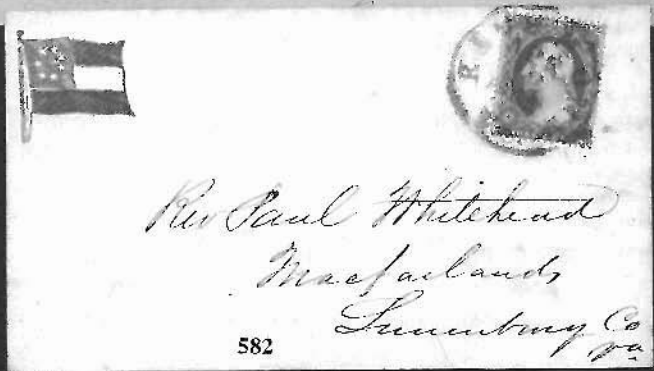 RI
Rev Paul Whitehead
Macfarlands
Lunenburg Co
Va.
582